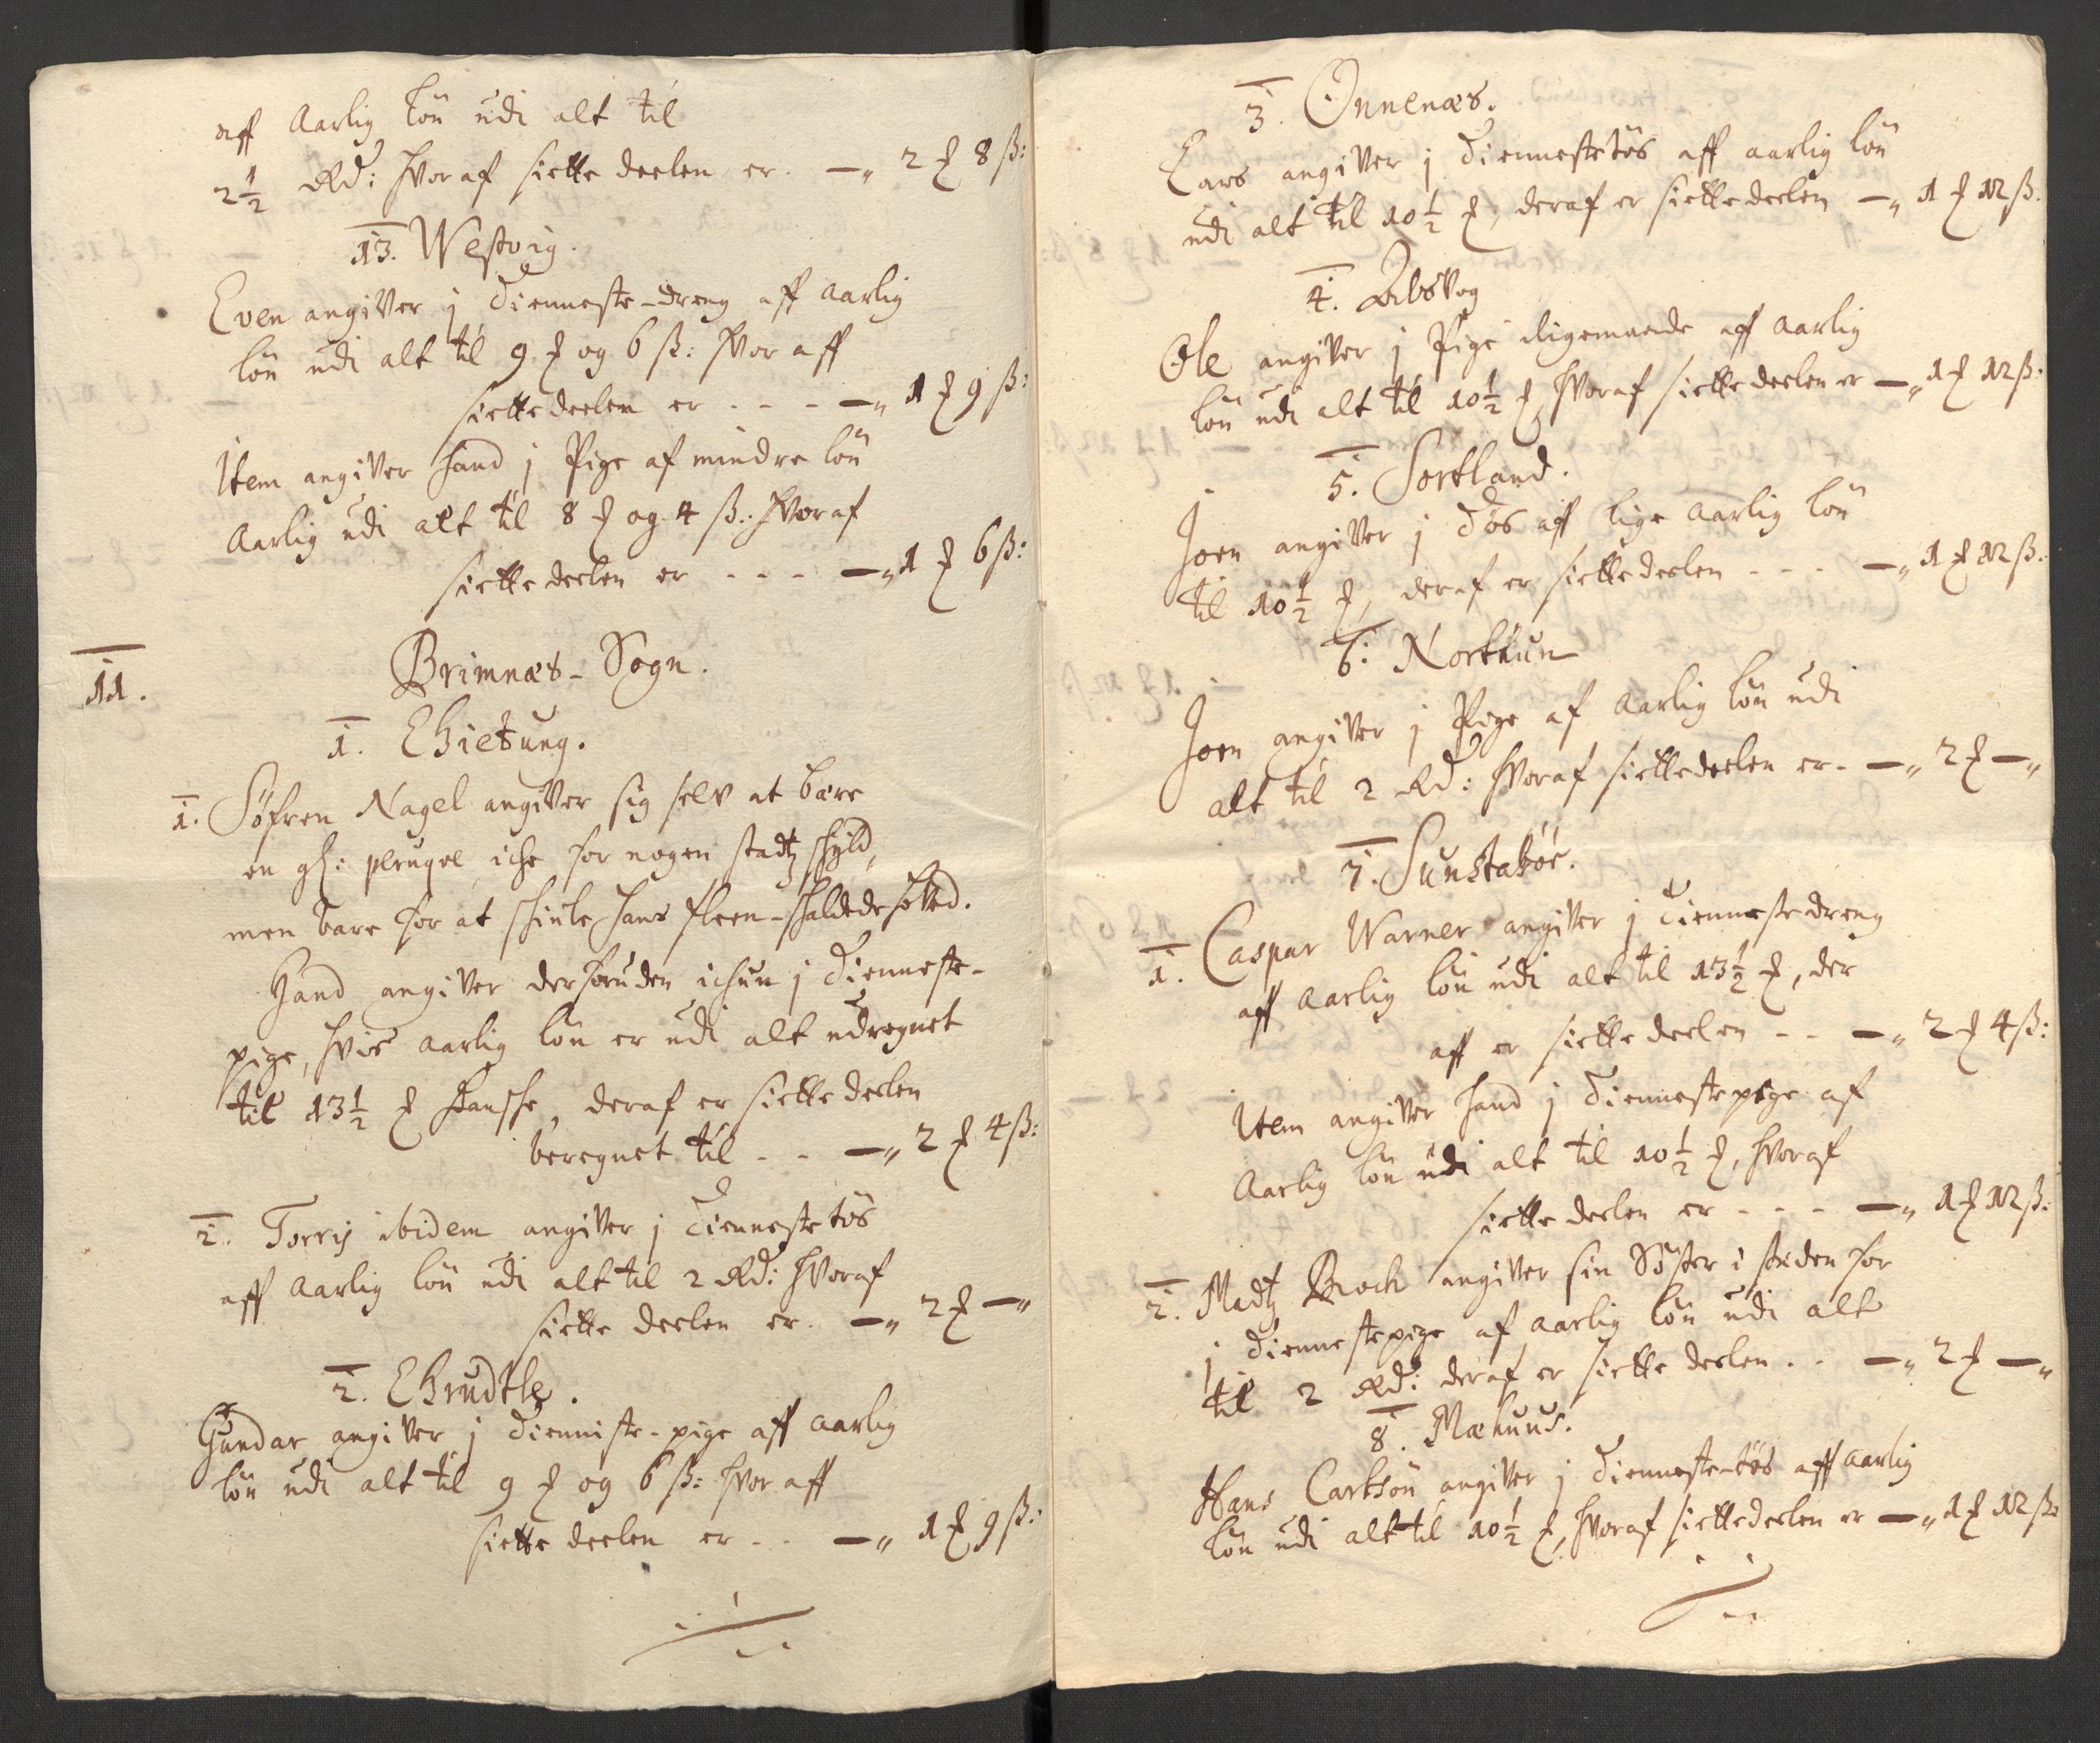 aff Aarlig løn udi alt til
2½ Rd: hvoraf siette deelen er. —„ 2 ₰ 8 ß:
13. Westvig.
Even angiver j dienneste-dreng aff aarlig
løn udi alt til 9 ₰ og 6 ß: hvor aff
siette deelen er - - - —„ 1 ₰ 9 ß:
Item angiver hand j Pige af mindre løn
Aarlig udi alt til 8 ₰ og 4 ß: hvoraf
siette deelen er - - - —„ 1 ₰ 6 ß:
11.
Brimnæs-Sogn.
1.
1. Søfren Nagel angiver sig selv at bære
en gl: peruqve, iche for nogen stadtz skyld,
men bare for at skiule hans fleen-skaldede hoved.
Hand angiver derforuden ichun j dienneste-
pige, hvis aarlig løn er udi alt udregnet
til 13½ ₰ danske, deraf er siette deelen
beregnet til - - —„ 2 ₰ 4 ß:
2. Torris ibidem angiver j tienneste tøs
aff Aarlig løn udi alt til 2 Rd: hvoraf
siette deelen er. —„ 2 ₰ —„
2.
Gundar angiver j dienniste-pige aff aarlig
løn udi alt til 9 ₰ og 6 ß: hvor aff
siette deelen er - - —„ 1 ₰ 9 ß:
3. Onnenæs.
Lars angiver j dienneste tøs aff aarlig løn
udi alt til 10½ ₰, deraf er siette deelen —„ 1 ₰ 12 ß.
4.
Ole angiver j Pige ligemaade aff aarlig
løn udi alt til 10½ ₰, hvoraf siette deelen er —„ 1 ₰ 12 ß.
5. Sortland.
Joen angiver j døs aff lige aarlig løn
til 10½ ₰, deraf er siette deelen - - - —„ 1 ₰ 12 ß.
6: Northun
Joen angiver j Pige af aarlig løn udi
alt til 2 Rd: hvoraf siette deelen er - —„ 2 ₰ —„
7. Sunstabøe.
1. Caspar Warner angiver j tienneste dreng
aff aarlig løn udi alt til 13½ ₰, der
aff er siette deelen - - —„ 2 ₰ 4 ß:
Item angiver hand j dienneste pige af
Aarlig løn udi alt til 10½ ₰, hvoraf
siette deelen er - - - —„ 1 ₰ 12 ß:
2. Madtz Broch angiver sin Søster i steden for
j dienneste pige af aarlig løn udi alt
til 2 Rd: deraf er siette deelen . . —„ 2 ₰ —„
8. Mæhuus.
Hans Carlsøn angiver j dienneste-tøs aff aarlig
løn udi alt til 10½ ₰, hvoraf siette deelen er —„ 1 ₰ 12 ß: